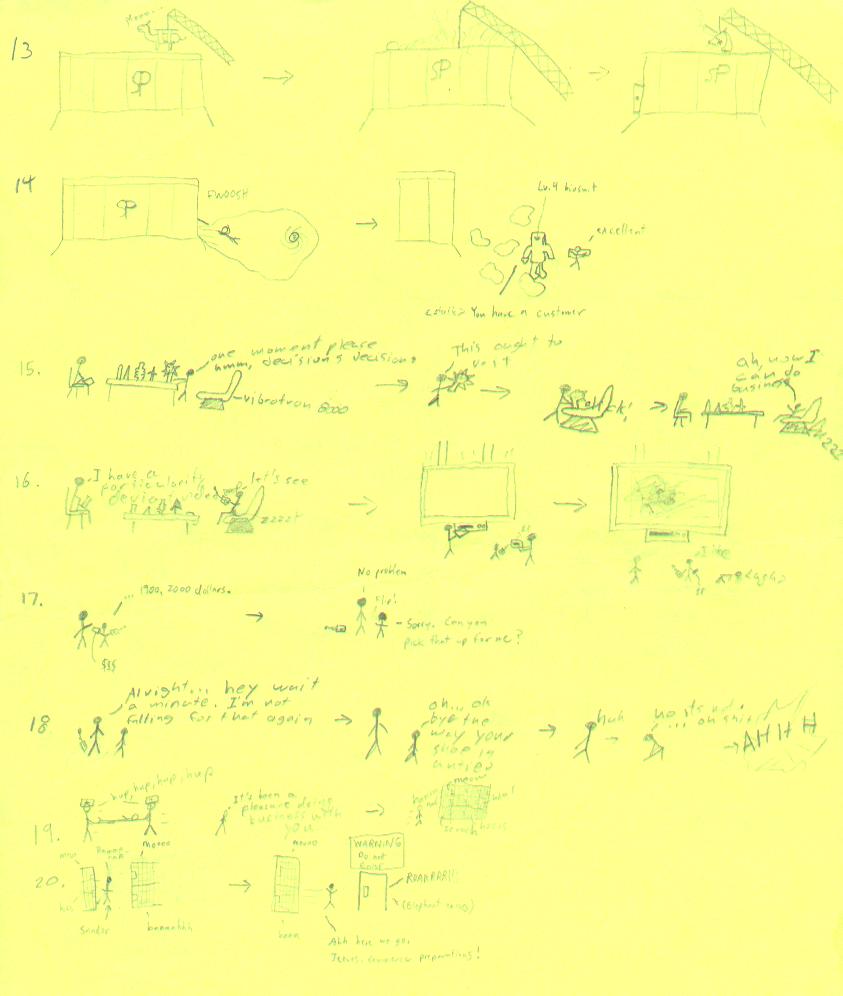 13
Mooo...
SP
SP
SP
14
SP
FWOOSH
Lv.4 biosuit
excellent
You have a customer
15.
one moment please
hmm, decisions decisions
vibrotron 8000
This ought to
do it
ah, now I
can do
business
16.
I have a
particularly
deviant video
let's see
zzzzt
I like
17.
... 1900, 2000 dollars.
$$$
No problem
flip!
Sorry. Can you
pick that up for me?
18.
Alright... hey wait
a minute. I'm not
falling for that again
oh... oh
bye the
way your
shoe is
untied
huh
no its not.
... oh shit!
AHHH
19.
hup, hup, hup, hup
It's been a
pleasure doing
business with
you
meow
20.
moooo
Sandor
baaaahhh
moooo
baaa
WARNING
Do not
ROARRRR!!
(Elephant noises)
Ahh here we go.
preparations!